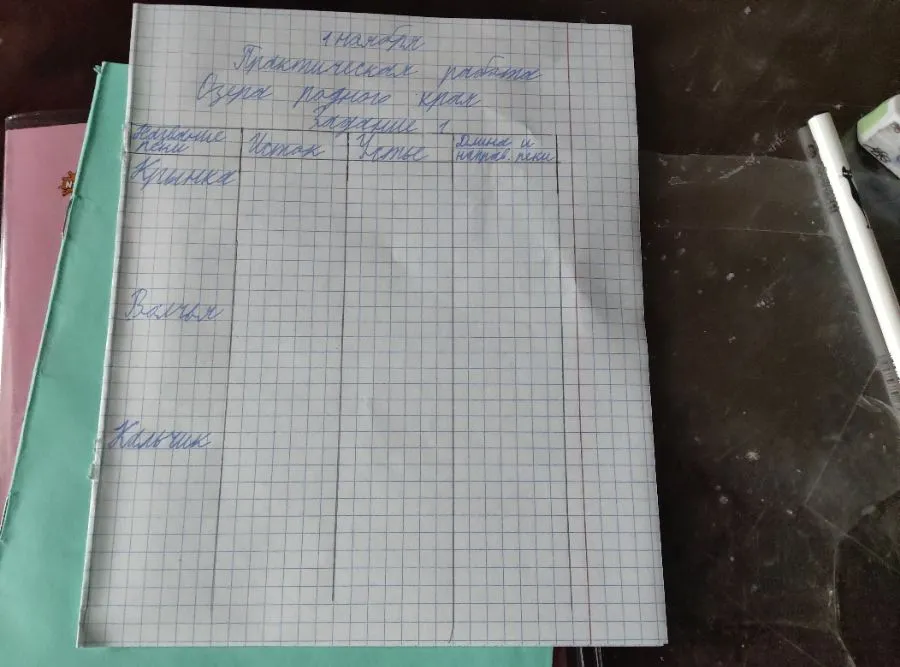 1 ноября
Практическая работа
Озера родного края
Задание 1
Название реки
Исток
Устье
Длина и направ. реки
Крынка
Волчья
Кальчик